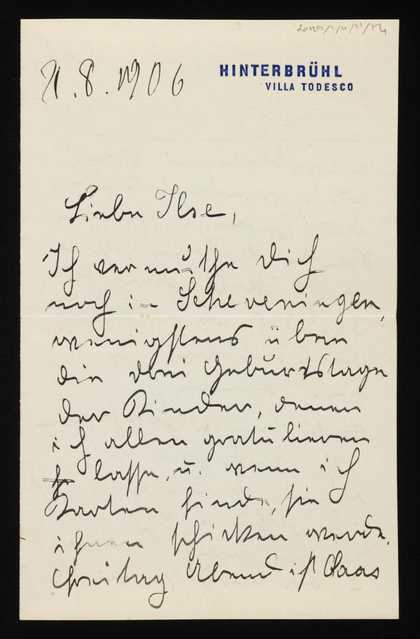 HINTERBRÜHL
VILLA TODESCO
8. 1906
Liebe Ilse,
Ich vermuthe Dich
noch in Scheveningen,
wenigstens über
die drei Geburtstage
der Kinder, denen
ich allen gratulieren
lasse, u. wenn ich
Karten finde, sie
ihnen schicken werde.
Freitag Abend ist Claas